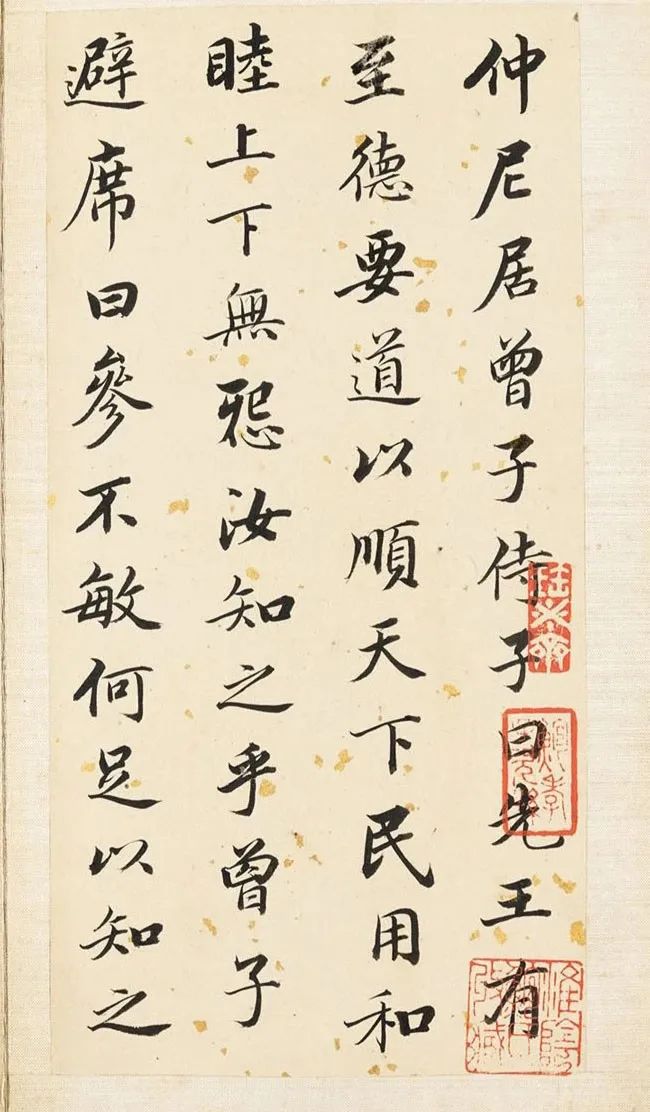 仲尼居曾子侍子曰先王有
至德要道以順天下民用和
睦上下無惡汝知之乎曾子
避席曰參不敏何足以知之